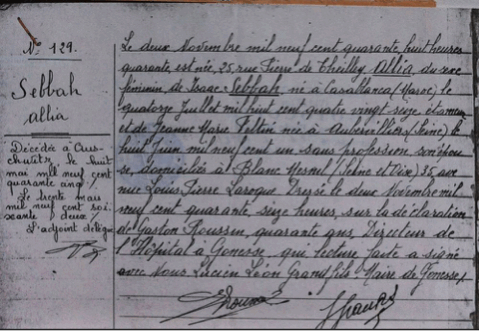 N° 129.
Sebbah
allia
Décédée à Aus-
chwitz le huit
mai mil neuf cent
quarante cinq /.
Le trente mars
mil neuf cent soi-
xante deux /.
L'adjoint délégué
Le deux Novembre mil neuf cent quarante, huit heures
quarante est née, 25 rue Pierre de Theilley Allia, du sexe
féminin, de Isaac Sebbah né à Casablanca (Maroc) le
quatorze Juillet mil huit cent quatre vingt seize
et de Jeanne Marie née à Aubervilliers (Seine) le
huit Juin mil neuf cent un sans profession son épou
se, domiciliés à Blanc Mesnil (Seine et Oise) 35, ave
nue Louis Pierre Dressé le deux Novembre mil
neuf cent quarante, seize heures, sur la déclaration
de Gaston Roussin, quarante ans, Directeur de
l'Hôpital à Gonesse, qui lecture faite a signé
avec Nous Lucien Léon Grandfils Maire de Gonesse /.